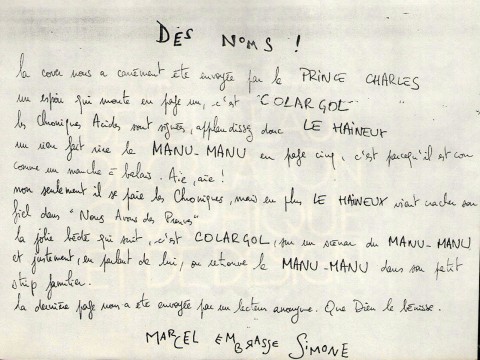 DES NOMS !
la cover nous a carrément été envoyée par le PRINCE CHARLES
un espoir qui monte en page un, c'est "COLARGOL"
les Chroniques Acides sont signées, applaudissez donc LE HAINEUX
un rien fait rire le MANU-MANU en page cinq, c'est parcequ'il est con
comme un manche à balais. Aïe, aïe !
non seulement il se paie les Chroniques, mais en plus LE HAINEUX vient cracher son
fiel dans "Nous Avons des Preuves"
la jolie bédé qui suit, c'est COLARGOL, sur un scénar du MANU-MANU
et justement, en parlant de lui, on retrouve le MANU-MANU dans son petit
strip familier.
la dernière page nous a été envoyée par un lecteur anonyme. Que Dieu le bénisse.
MARCEL EMBRASSE SIMONE